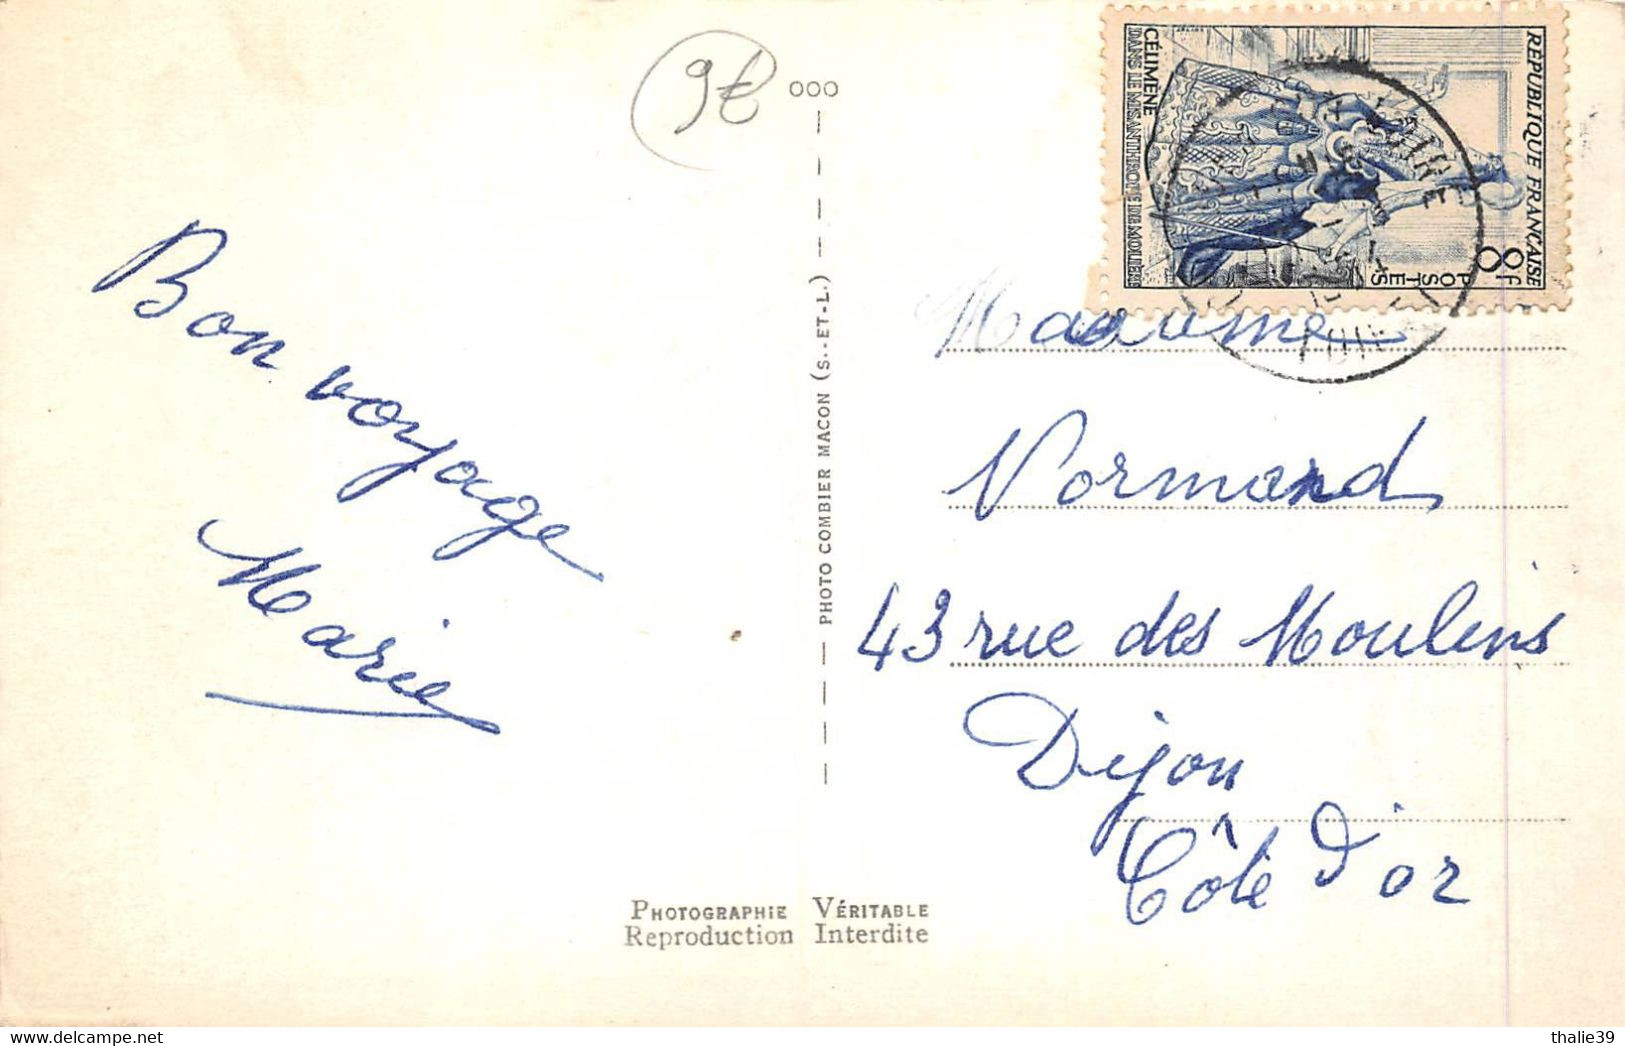 9€
ooo
RÉPUBLIQUE FRANÇAISE
8f
POSTES
CÉLIMENE
DANS LE MISANTHROPE DE MOLIÈRE
Bon voyage
Marie
PHOTO COMBIER MACON (S.-ET-L.)
Madame
Normand
43 rue des Moulins
Dijon
Côte d'or
PHOTOGRAPHIE VÉRITABLE
Reproduction Interdite
thalie39